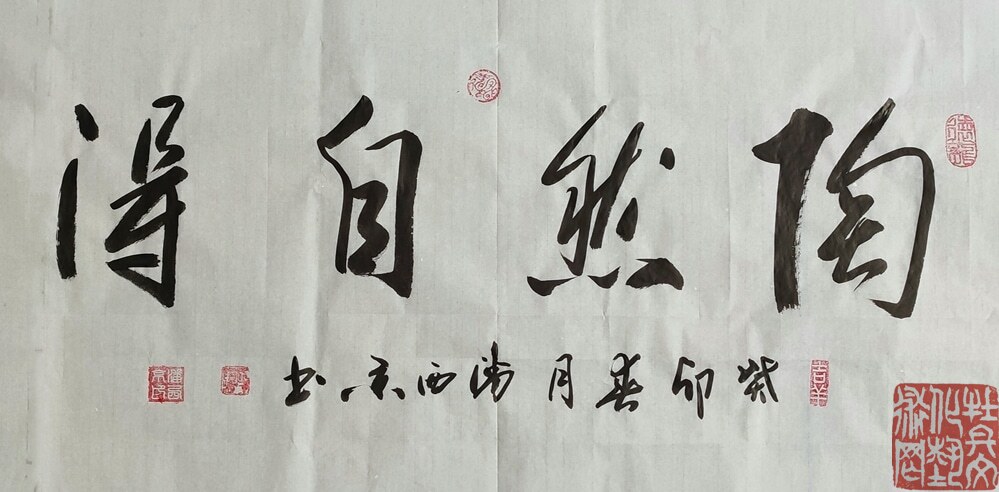 陶然自得
癸卯春月潘西京书